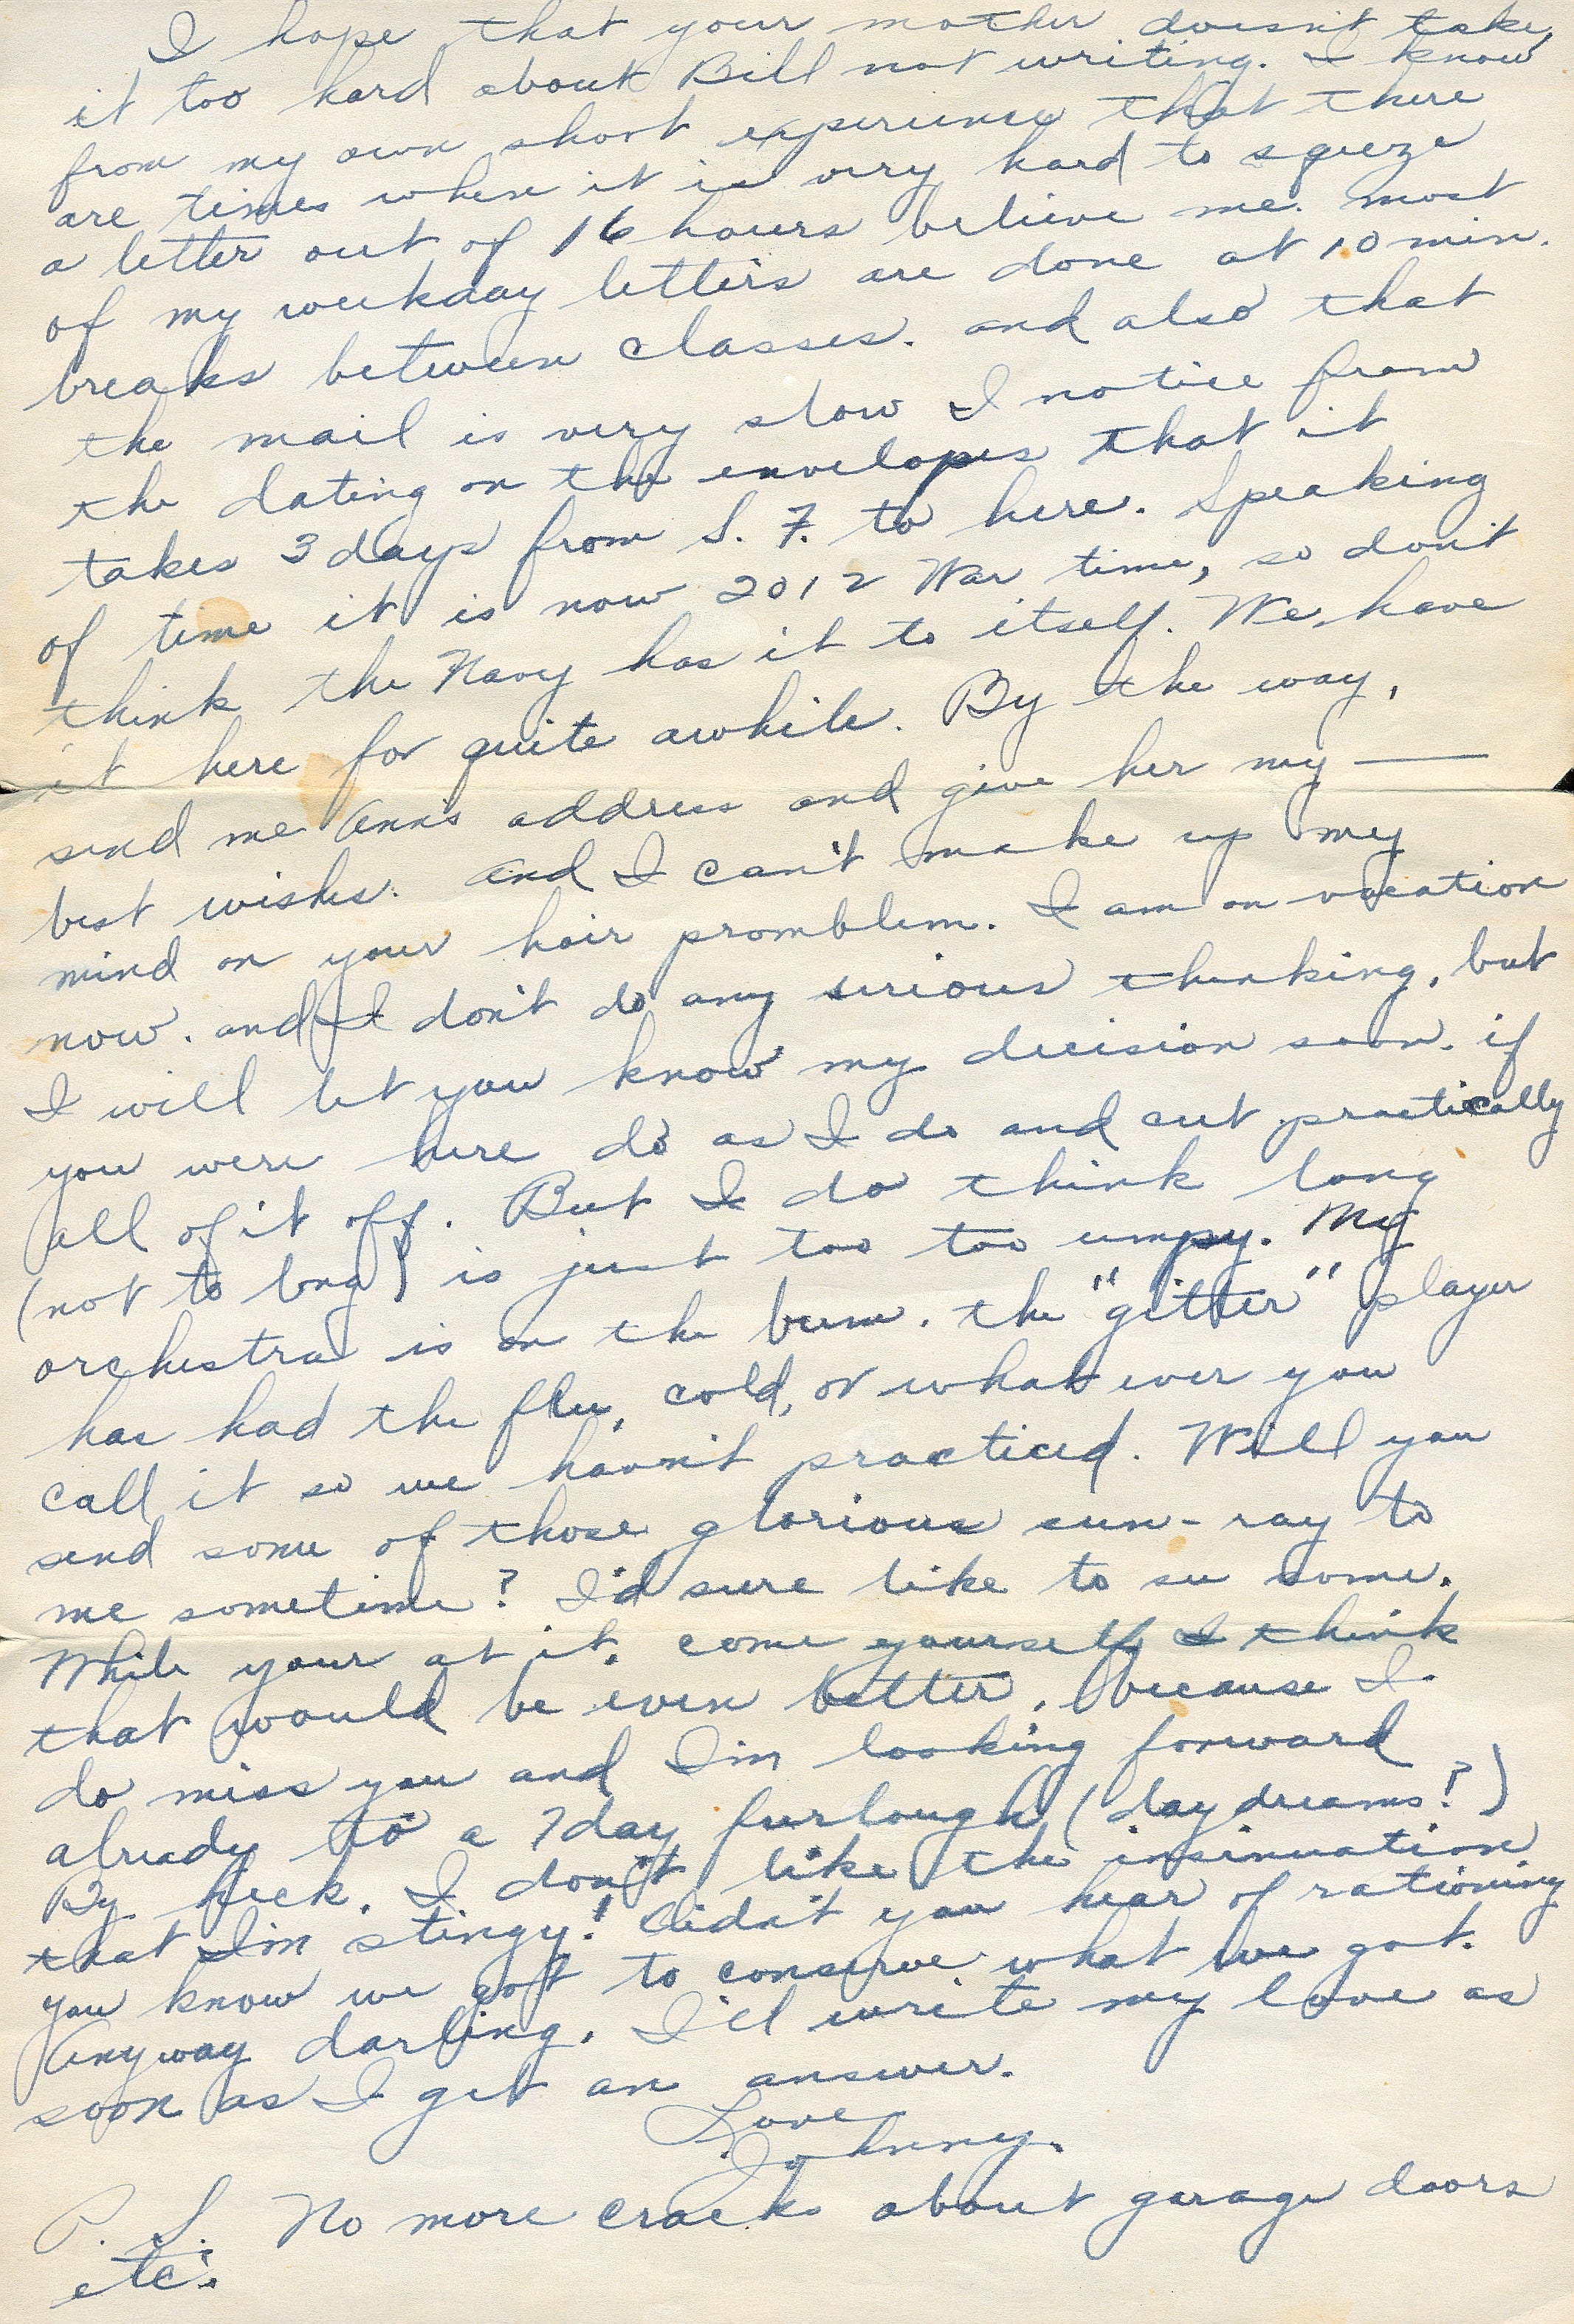 I hope that your mother doesn't take
it too hard about Bill not writing. I know
from my own short experience that there
are times when it is very hard to sqeeze
a letter out of 16 hours believe me. most
of my weekday letters are done at 10 min.
breaks between classes. and also that
the mail is very slow I notice from
the dating on the envelopes that it
takes 3 days from S. F. to here. Speaking
of time it is now 2012 War time, so don't
think the Navy has it to itself. We have
it here for quite awhile. By the way,
send me Ann's address and give her my —
best wishes. and I can't make up my
mind on your hair promblem. I am on vacation
now. and I don't do any serious thinking, but
I will let you know my decision soon. if
you were here do as I do and cut practically
all of it off. But I do think long
(not to long) is just too too umpy. My
orchestra is on the bum. the "gitter" player
has had the flu, cold, or what ever you
call it so we havn't practiced. Will you
send some of those glorious sun-ray to
me sometime? I'd sure like to see some.
While your at it, come yourself I think
that would be even better, because I
do miss you and I'm looking forward
already to a 7 day furlough (day dreams!)
By heck, I don't like the insinuation
that I'm stingy! didn't you hear of rationing
you know we got to conserve what we got.
Anyway darling, I'll write my love as
soon as I get an answer.
Love
Johnny.
P. S. No more cracks about garage doors
etc.